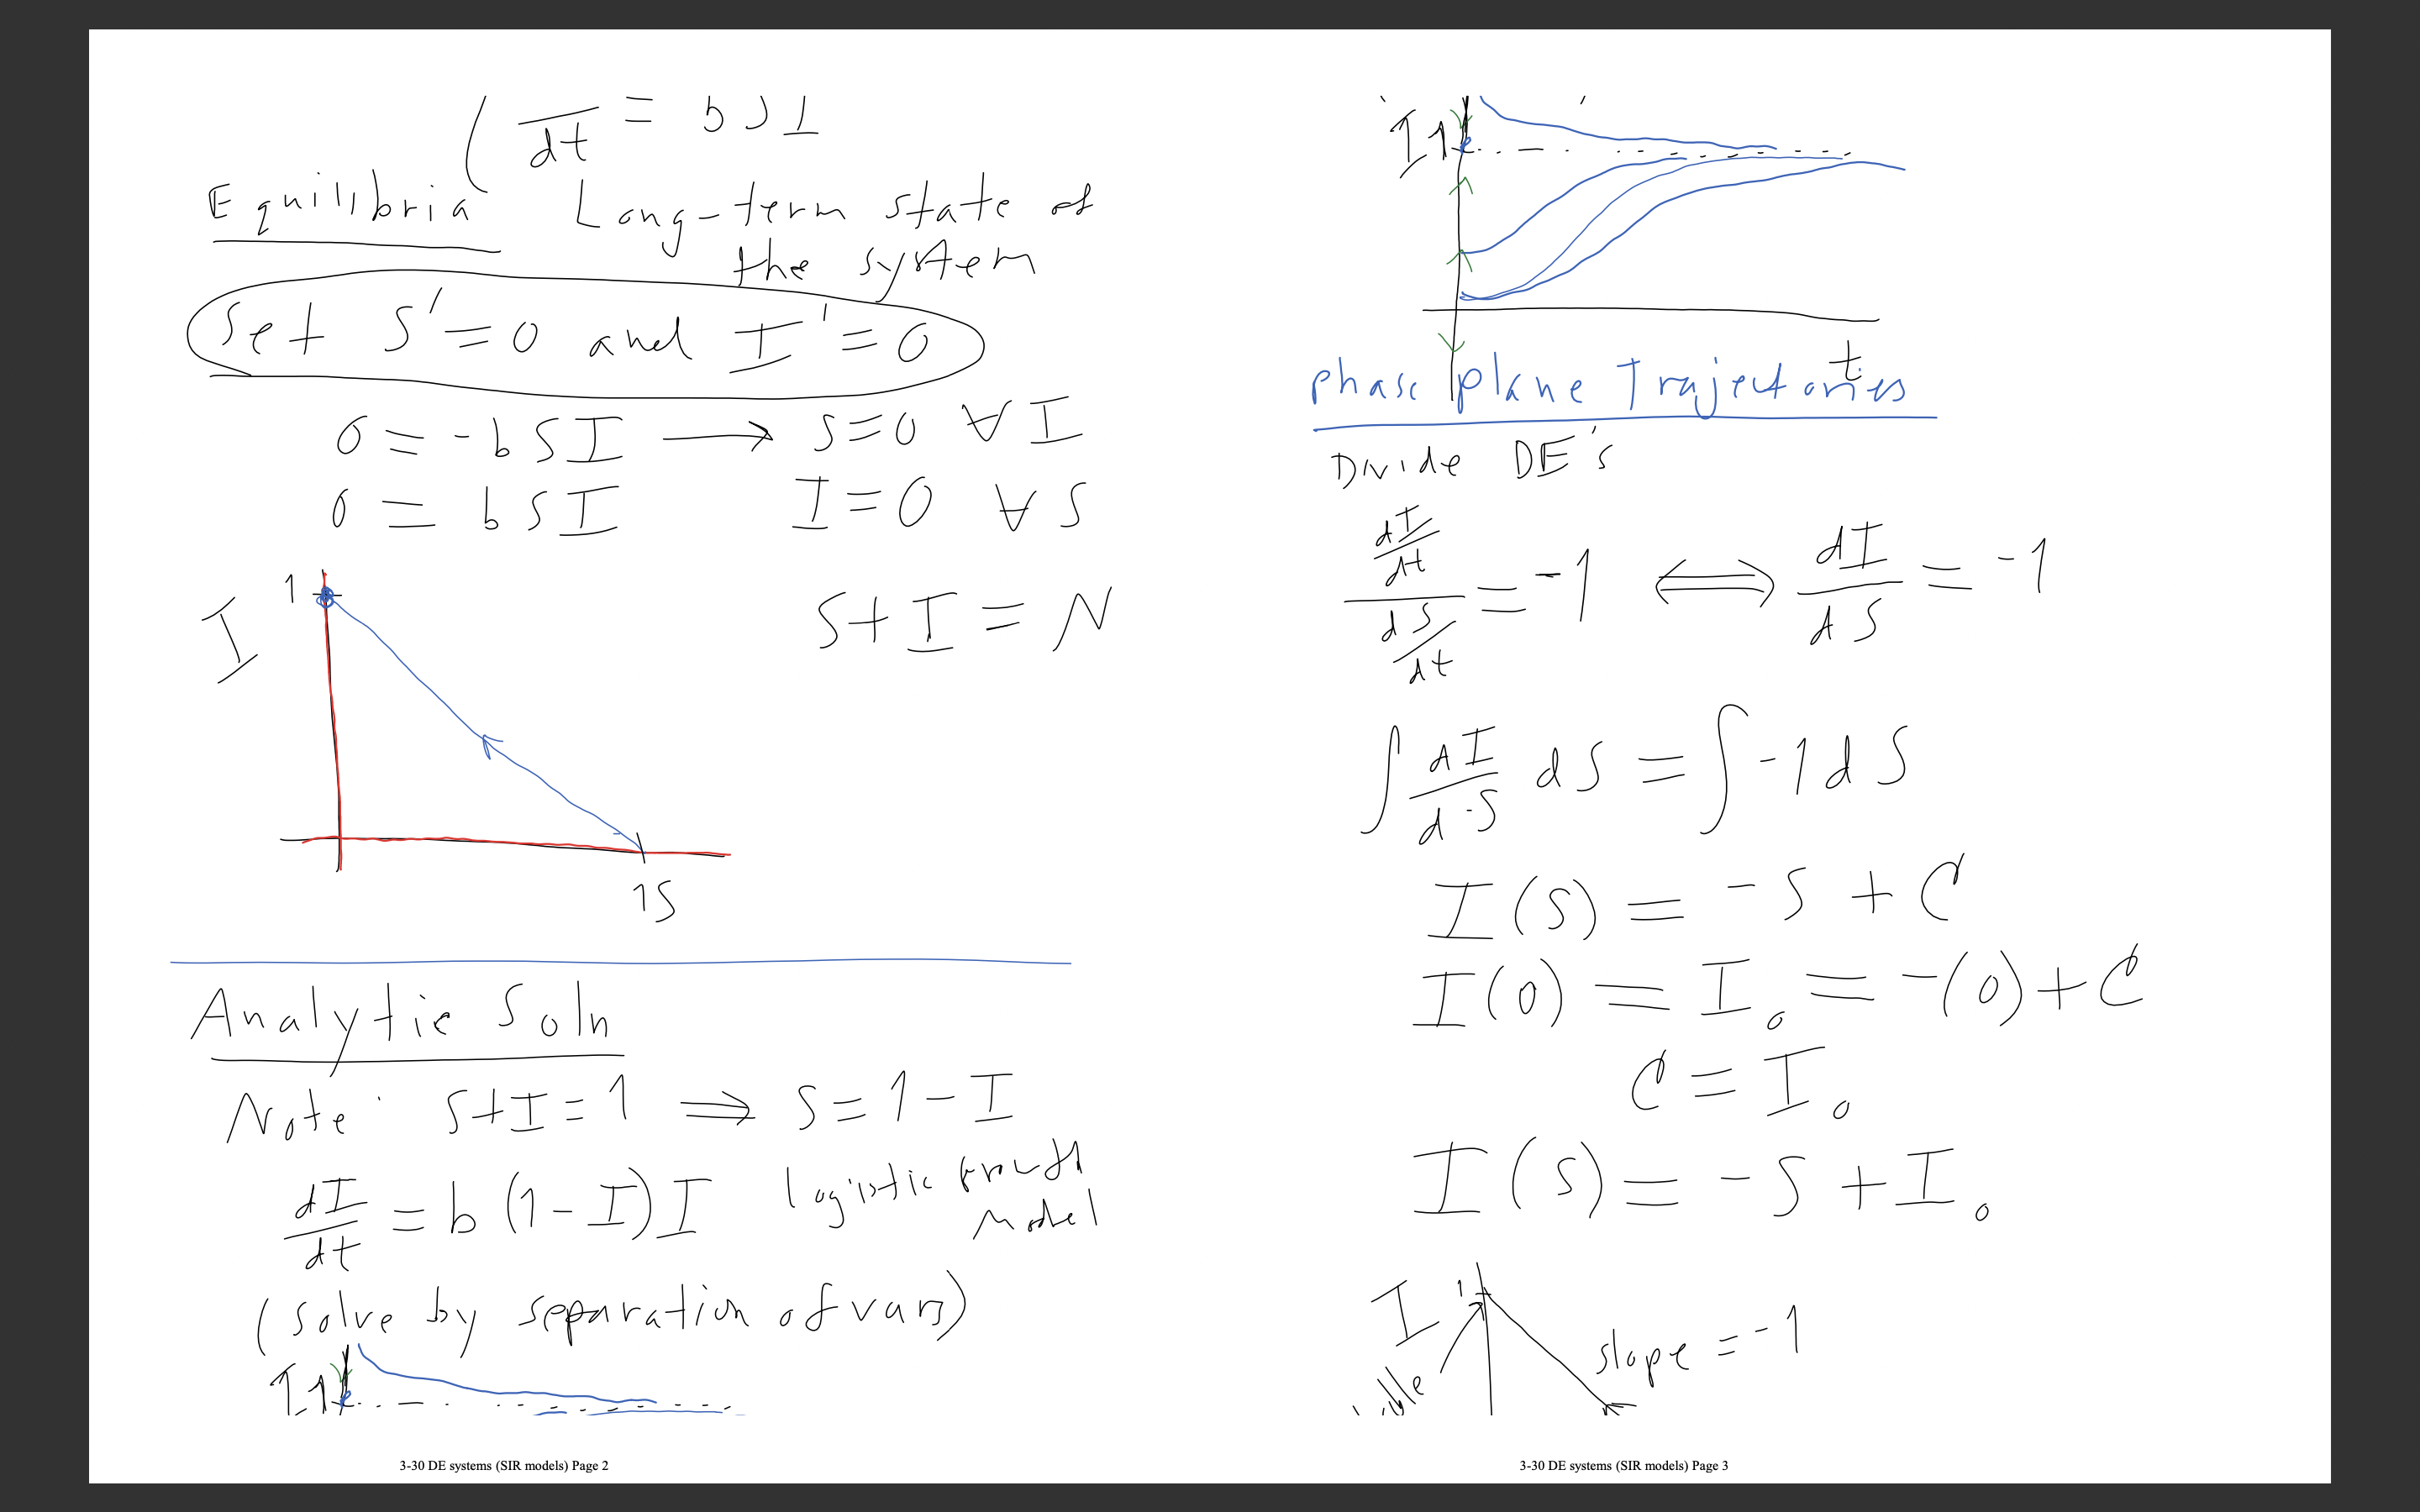 dt = b S I
Equilibria Long-term state of
the system
Set S' = 0 and I' = 0
0 = -bSI → S=0 ∀ I
0 = bSI I=0 ∀ S
1
I
S+I=N
1 S
Analytic Soln
Note: S+I=1 ⇒ S=1-I
dI/dt = b(1-I)I logistic growth
model
(solve by separation of vars)
I 1
3-30 DE systems (SIR models) Page 2
I 1
t
Phase Plane Trajectories
Divide DE's
(dI/dt)/(dS/dt) = -1 ⟺ dI/dS = -1
∫ dI/dS dS = ∫ -1 dS
I(S) = -S + C
I(0) = I₀ = -(0) + C
C = I₀
I(S) = -S + I₀
I 1
slope = -1
3-30 DE systems (SIR models) Page 3